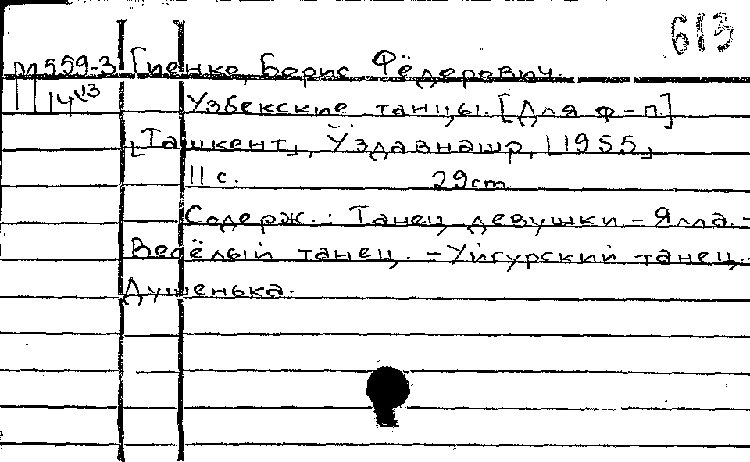 613
М 559-3 Гиенко, Борис Фёдерович.
Узбекские танцы. [Для ф-п]
[Ташкент], Ўздавнашр, [1955]
11 с. 29 cm
Содерж.: Танец девушки - Ялла. -
Весёлый танец. - Уйгурский танец. -
Душенька.